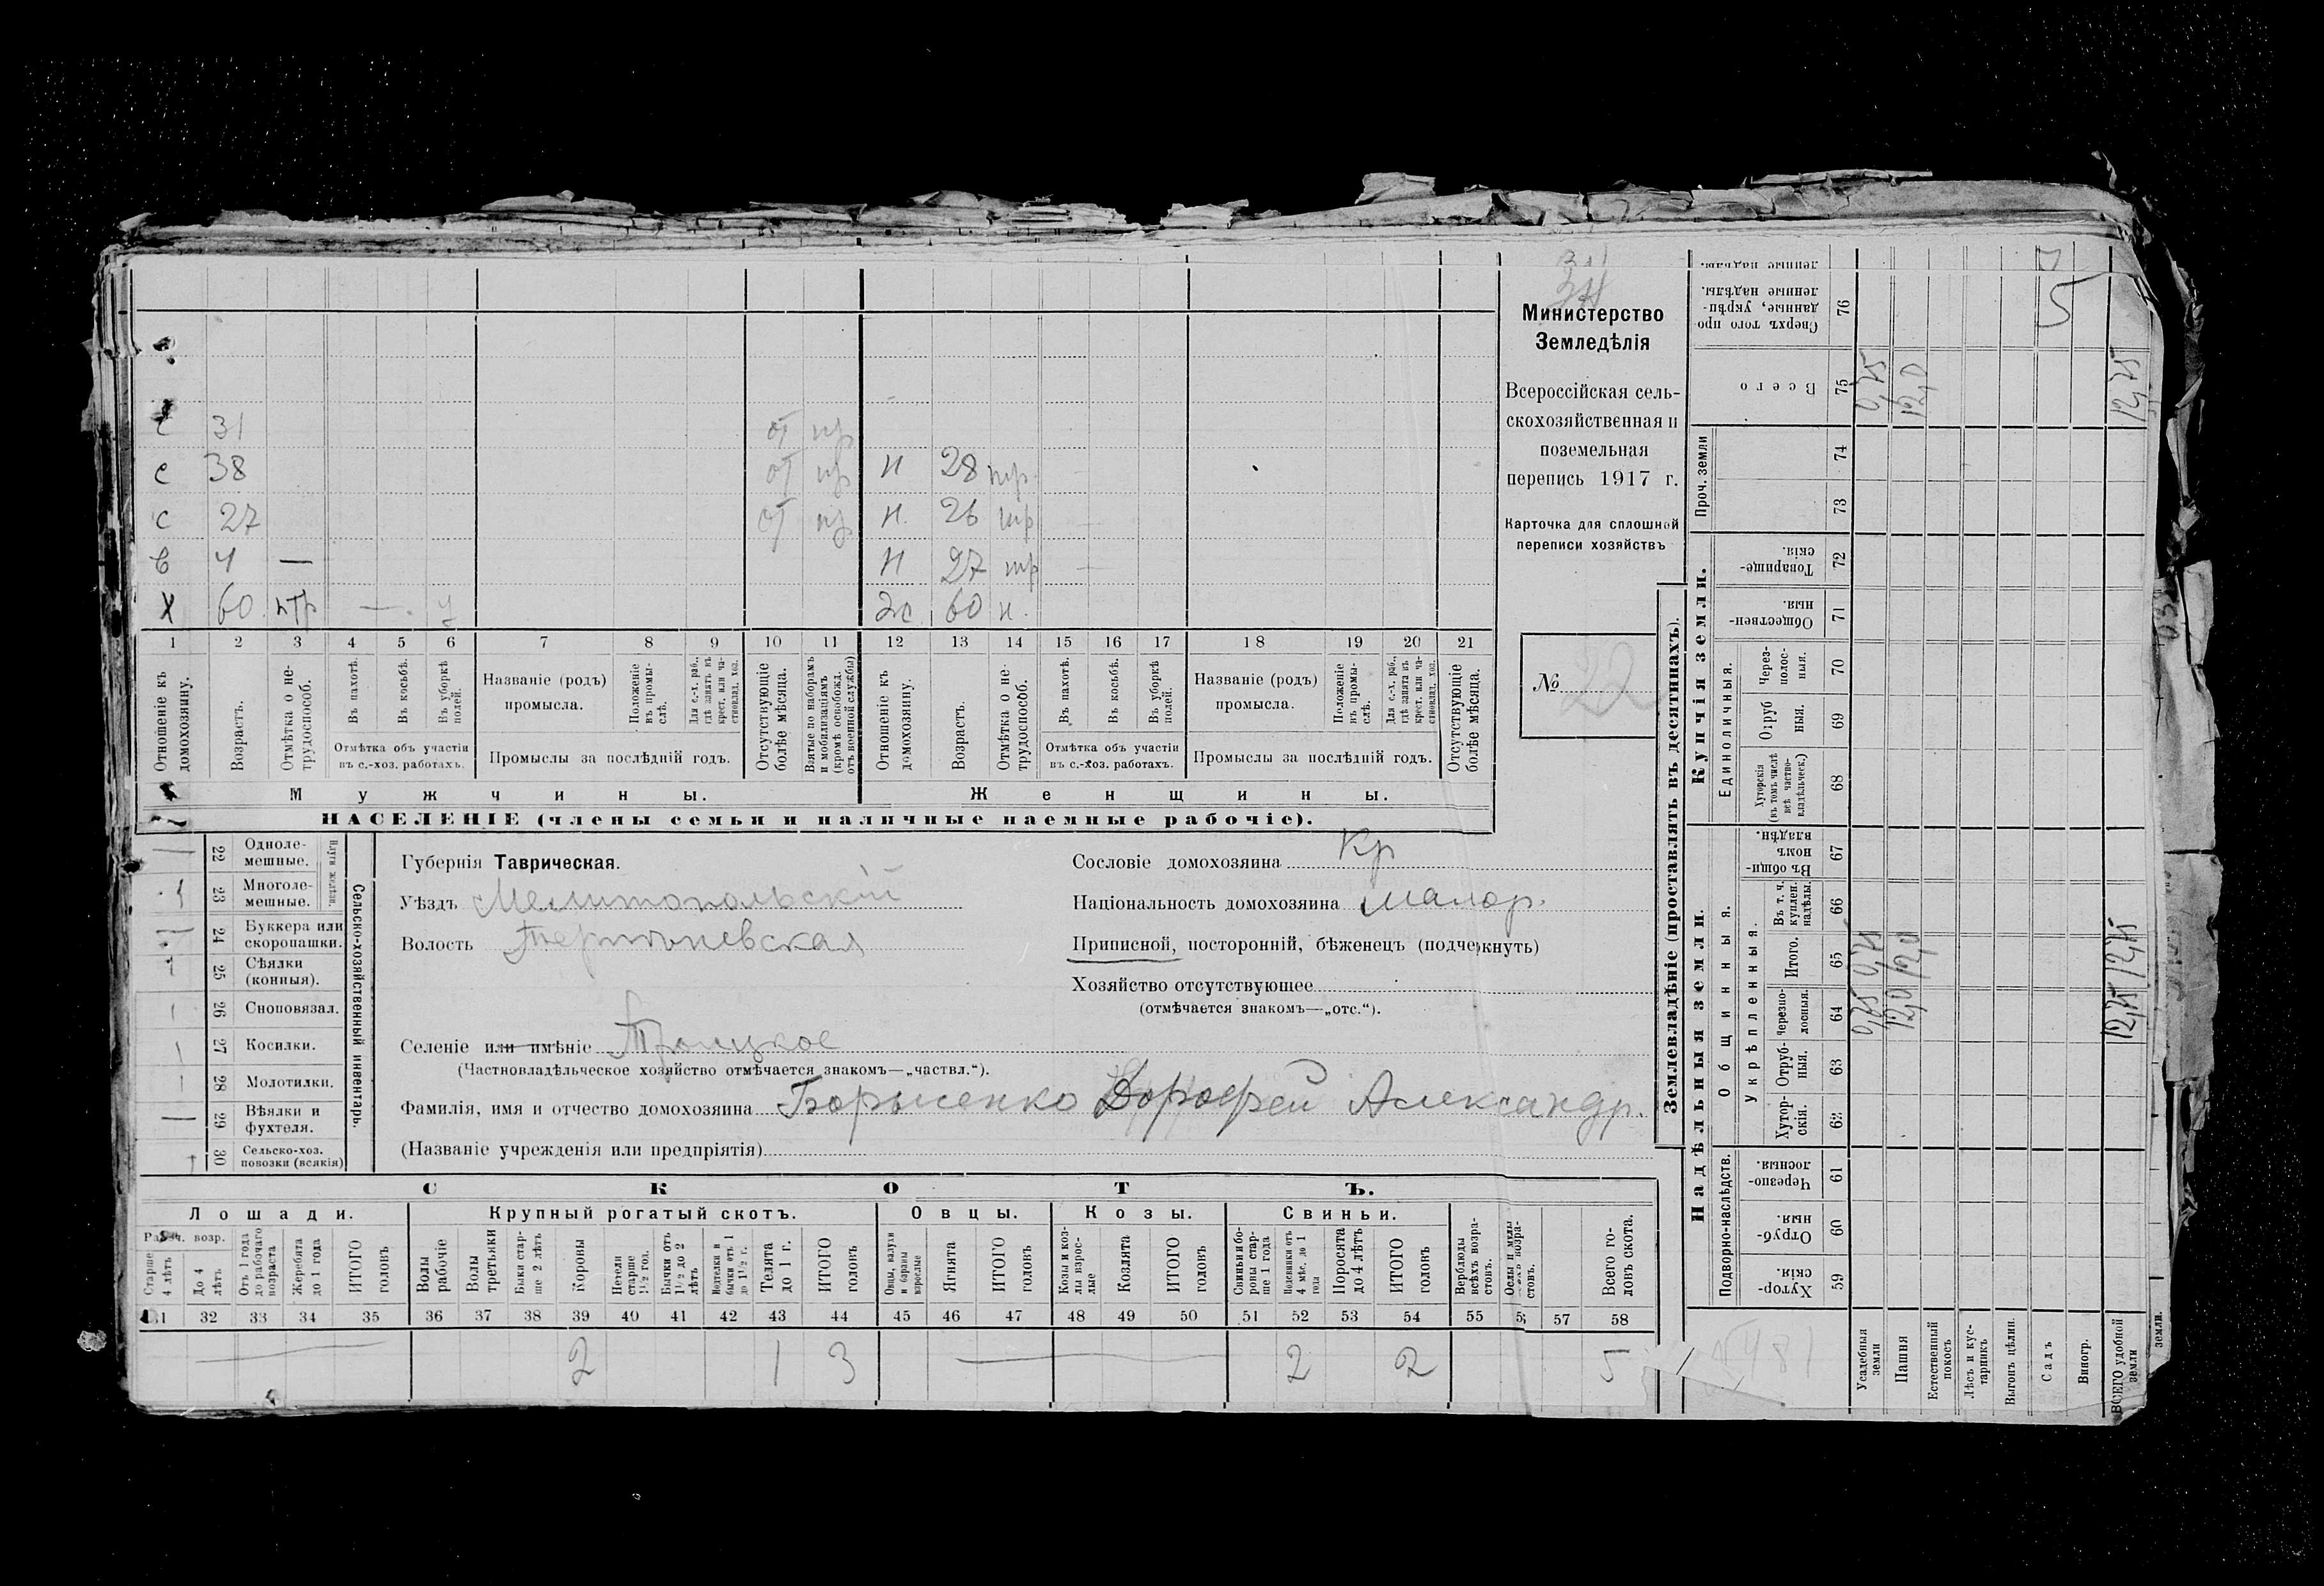 Министерство
Земледѣлія
Всероссійская сель-
скохозяйственная и
поземельная
перепись 1917 г.
Карточка для сплошной
переписи хозяйствъ
№ 22
с 31 от
с 38 от н 28
с 27 от н. 26
в 4 — н 27
х 60 ж 60 н.
1 2 3 4 5 6 7 8 9 10 11 12 13 14 15 16 17 18 19 20 21
Отношеніе къ домохозяину.
Возрастъ.
Отмѣтка о не-трудоспособ.
Въ пахотѣ.
Въ косьбѣ.
Въ уборкѣ полей.
Отмѣтка объ участіи
въ с.-хоз. работахъ.
Названіе (родъ)
промысла.
Положеніе въ промы-слѣ.
Для с.-х. раб., гдѣ занятъ въ крест. или ча-стновлад. хоз.
Промыслы за послѣдній годъ.
Отсутствующіе болѣе мѣсяца.
Взятые по наборамъ и мобилизаціямъ (кромѣ освобожд. отъ военной службы)
Отношеніе къ домохозяину.
Возрастъ.
Отмѣтка о не-трудоспособ.
Въ пахотѣ.
Въ косьбѣ.
Въ уборкѣ полей.
Отмѣтка объ участіи
въ с.-хоз. работахъ.
Названіе (родъ)
промысла.
Положеніе въ промы-слѣ.
Для с.-х. раб., гдѣ занята въ крест. или ча-стновлад. хоз.
Промыслы за послѣдній годъ.
Отсутствующіе болѣе мѣсяца.
Мужчины. Женщины.
НАСЕЛЕНІЕ (члены семьи и наличные наемные рабочіе).
Сельско-хозяйственный инвентарь.
Плуги желѣзн.
22 Одноле-
мешные.
23 Многоле-
мешные.
24 Буккера или
скоропашки.
25 Сѣялки
(конныя).
26 Сноповязал.
27 Косилки.
28 Молотилки.
29 Вѣялки и
фухтеля.
30 Сельско-хоз.
повозки (всякія)
Губернія Таврическая.
Уѣздъ Мелитопольскій
Волость
Селеніе или имѣніе Троицкое
(Частновладѣльческое хозяйство отмѣчается знакомъ—„частвл.“).
Фамилія, имя и отчество домохозяина Борысенко Дорофей Александр.
(Названіе учрежденія или предпріятія)
Сословіе домохозяина Кр
Національность домохозяина малор.
Приписной, посторонній, бѣженецъ (подчеркнуть)
Хозяйство отсутствующее
(отмѣчается знакомъ—„отс.“).
СКОТЪ.
Лошади. Крупный рогатый скотъ. Овцы. Козы. Свиньи.
Рабоч. возр.
Старше 4 лѣтъ
До 4 лѣтъ
Отъ 1 года до рабочаго возраста
Жеребята до 1 года
ИТОГО головъ
Волы рабочіе
Волы третьяки
Быки стар-ше 2 лѣтъ
Коровы
Нетели старше 1½ год.
Бычки отъ 1½ до 2 лѣтъ
бычки отъ 1 до 1½ г.
Телята до 1 г.
ИТОГО головъ
Овцы, валухи и бараны взрослые
Ягнята
ИТОГО головъ
Козы и коз-лы взрос-лые
Козлята
ИТОГО головъ
Свиньи и бо-ровы стар-ше 1 года
4 мѣс. до 1 года
Поросята до 4 лѣтъ
ИТОГО головъ
Верблюды всѣхъ возра-стовъ.
Всего го-ловъ скота.
31 32 33 34 35 36 37 38 39 40 41 42 43 44 45 46 47 48 49 50 51 52 53 54 55 57 58
— 2 1 3 — 2 2 5
Землевладѣніе (проставлять въ десятинахъ).
Надѣльныя земли. Купчія земли.
Подворно-наслѣдств.
Общинныя.
Укрѣпленныя.
Единоличныя.
Проч. земли
Хутор-скія. 59
Отруб-ныя. 60
Черезпо-лосныя. 61
Хутор-скія. 62
Отруб-ныя. 63
Черезпо-лосныя. 64
Итого. 65
Въ т. ч. куплен. надѣлы. 66
Въ общин-номъ владѣн. 67
Хуторскія (въ томъ числѣ всѣ частно-владѣльческ.) 68
Отруб ныя. 69
Через-полос-ныя. 70
Обществен-ныя. 71
Товарище-скія. 72
73
74
Всего 75
Сверхъ того про-данные, укрѣп-ленные надѣлы. 76
ленные надѣлы.
5
Усадебныя земли 0,75 0,75 0,75
Пашня 12,0 12,0 12,0
Естественный покосъ
Лѣсъ и кус-тарникъ
Выгонъ цѣлин.
Садъ
Виногр.
ВСЕГО удобной земли 12,75 12,75 12,75
земли.